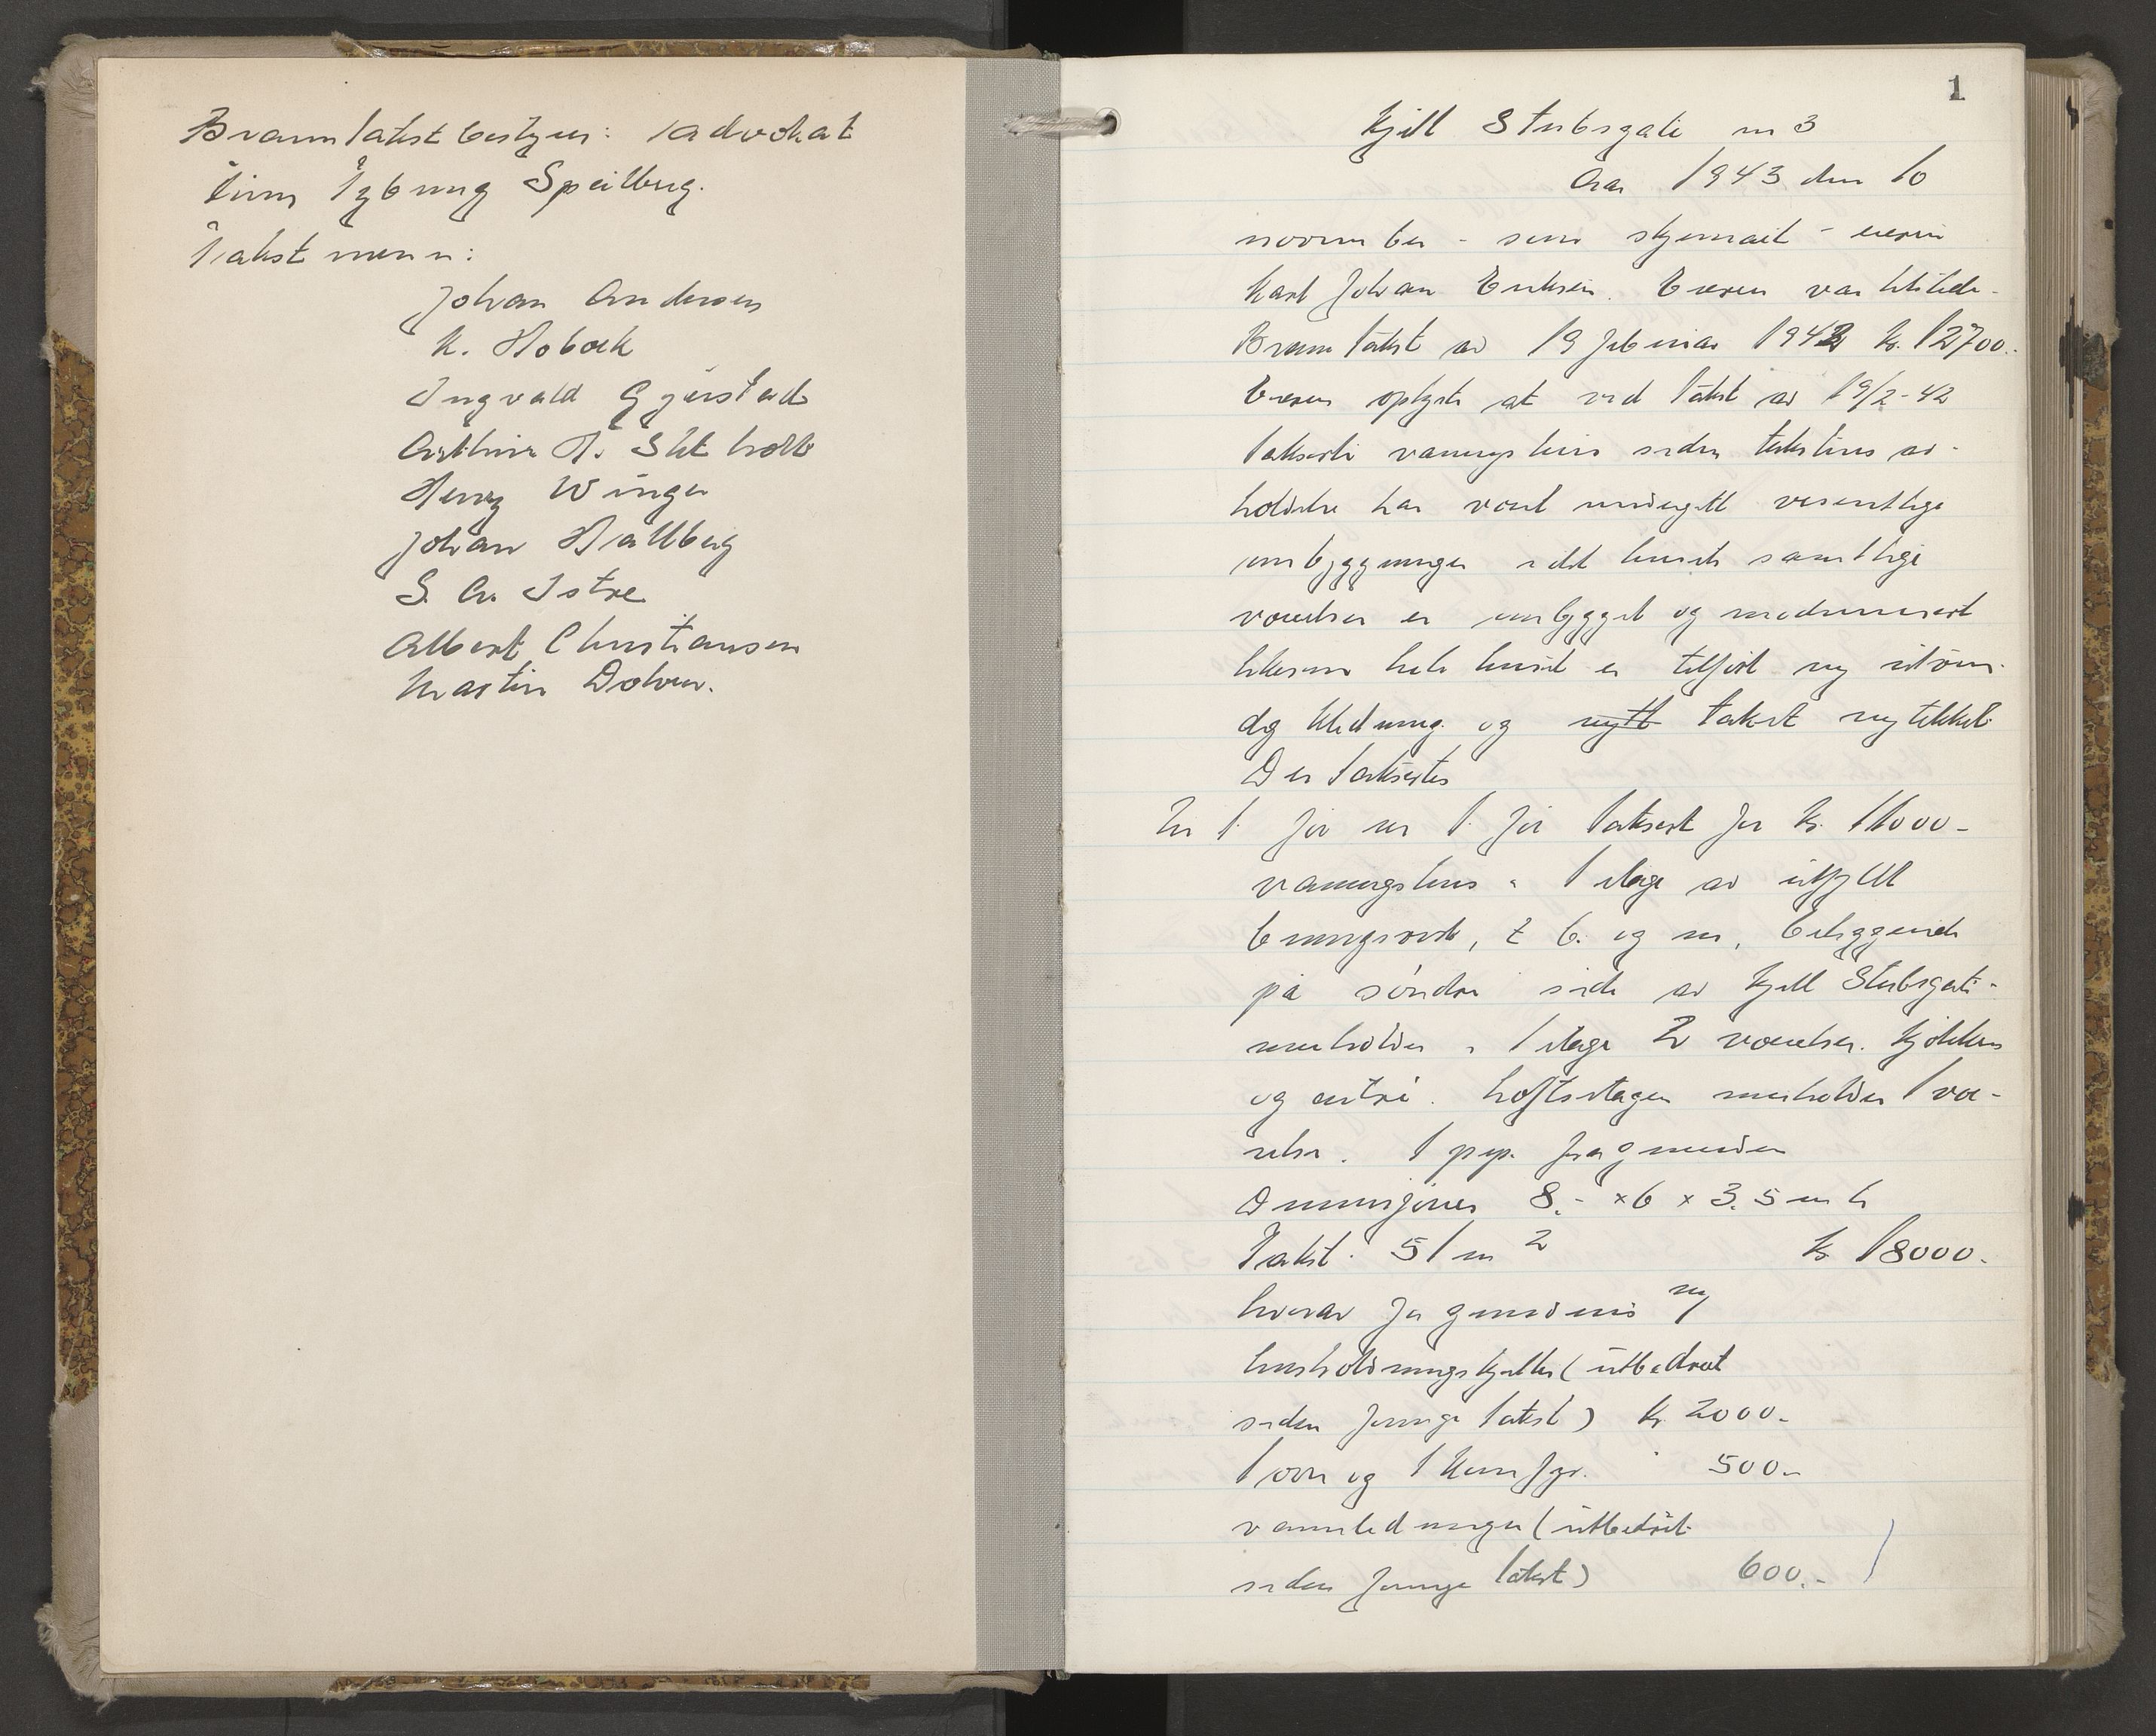 Branntakst bestyrer: advokat
Finn Nyborg Speilberg.
Takst menn:
Johan Andersen
K. Hobæk
Ingvald Gjerstad
Arthur T. Slettholt
Henry Winge
Johan Hallberg
S. A. Istre
Albert Christiansen
Martin Dolven.
1
Kjell Stubsgate nr 3
Aar 1943 den 10
november - som skjema it - eieren
Karl Johan Eriksen. Eieren var tilstede.
Branntakst av 19 februar 1942 kr. 12700.
Eieren oplyste at ved takst av 19/2-42
takserte vaningshus siden takstens av-
holdelse har vært undergitt vesentlige
ombygginger idet husets samtlige
værelser er ombygget og modernisert
likesom hele huset er tilført ny utven-
dig kledning og nytt taket nytekket
Der takseres
Nr 1. før nr 1. før taksert for kr. 11000-
vaningshus i 1 etage av utfyllt
bningsverk, t. b. og m, beliggende
på söndre side av Kjell Stubsgate -
inneholder i 1 etage 2 værelser. Kjøkken
og entré. Loftsetagen inneholder 1 væ-
relse. 1 pip. fra grunden
Dimensjoner 8.- × 6 × 3.5 m h
Takst. 51 m 2 kr 18000.
hvorav for grundmur ny
husholdningskjeller (utbedret
siden forrige takst) kr. 2000.-
1 ovn og 1 komfyr. 500.-
vannledninger (utbedret
siden forrige takst) 600.-